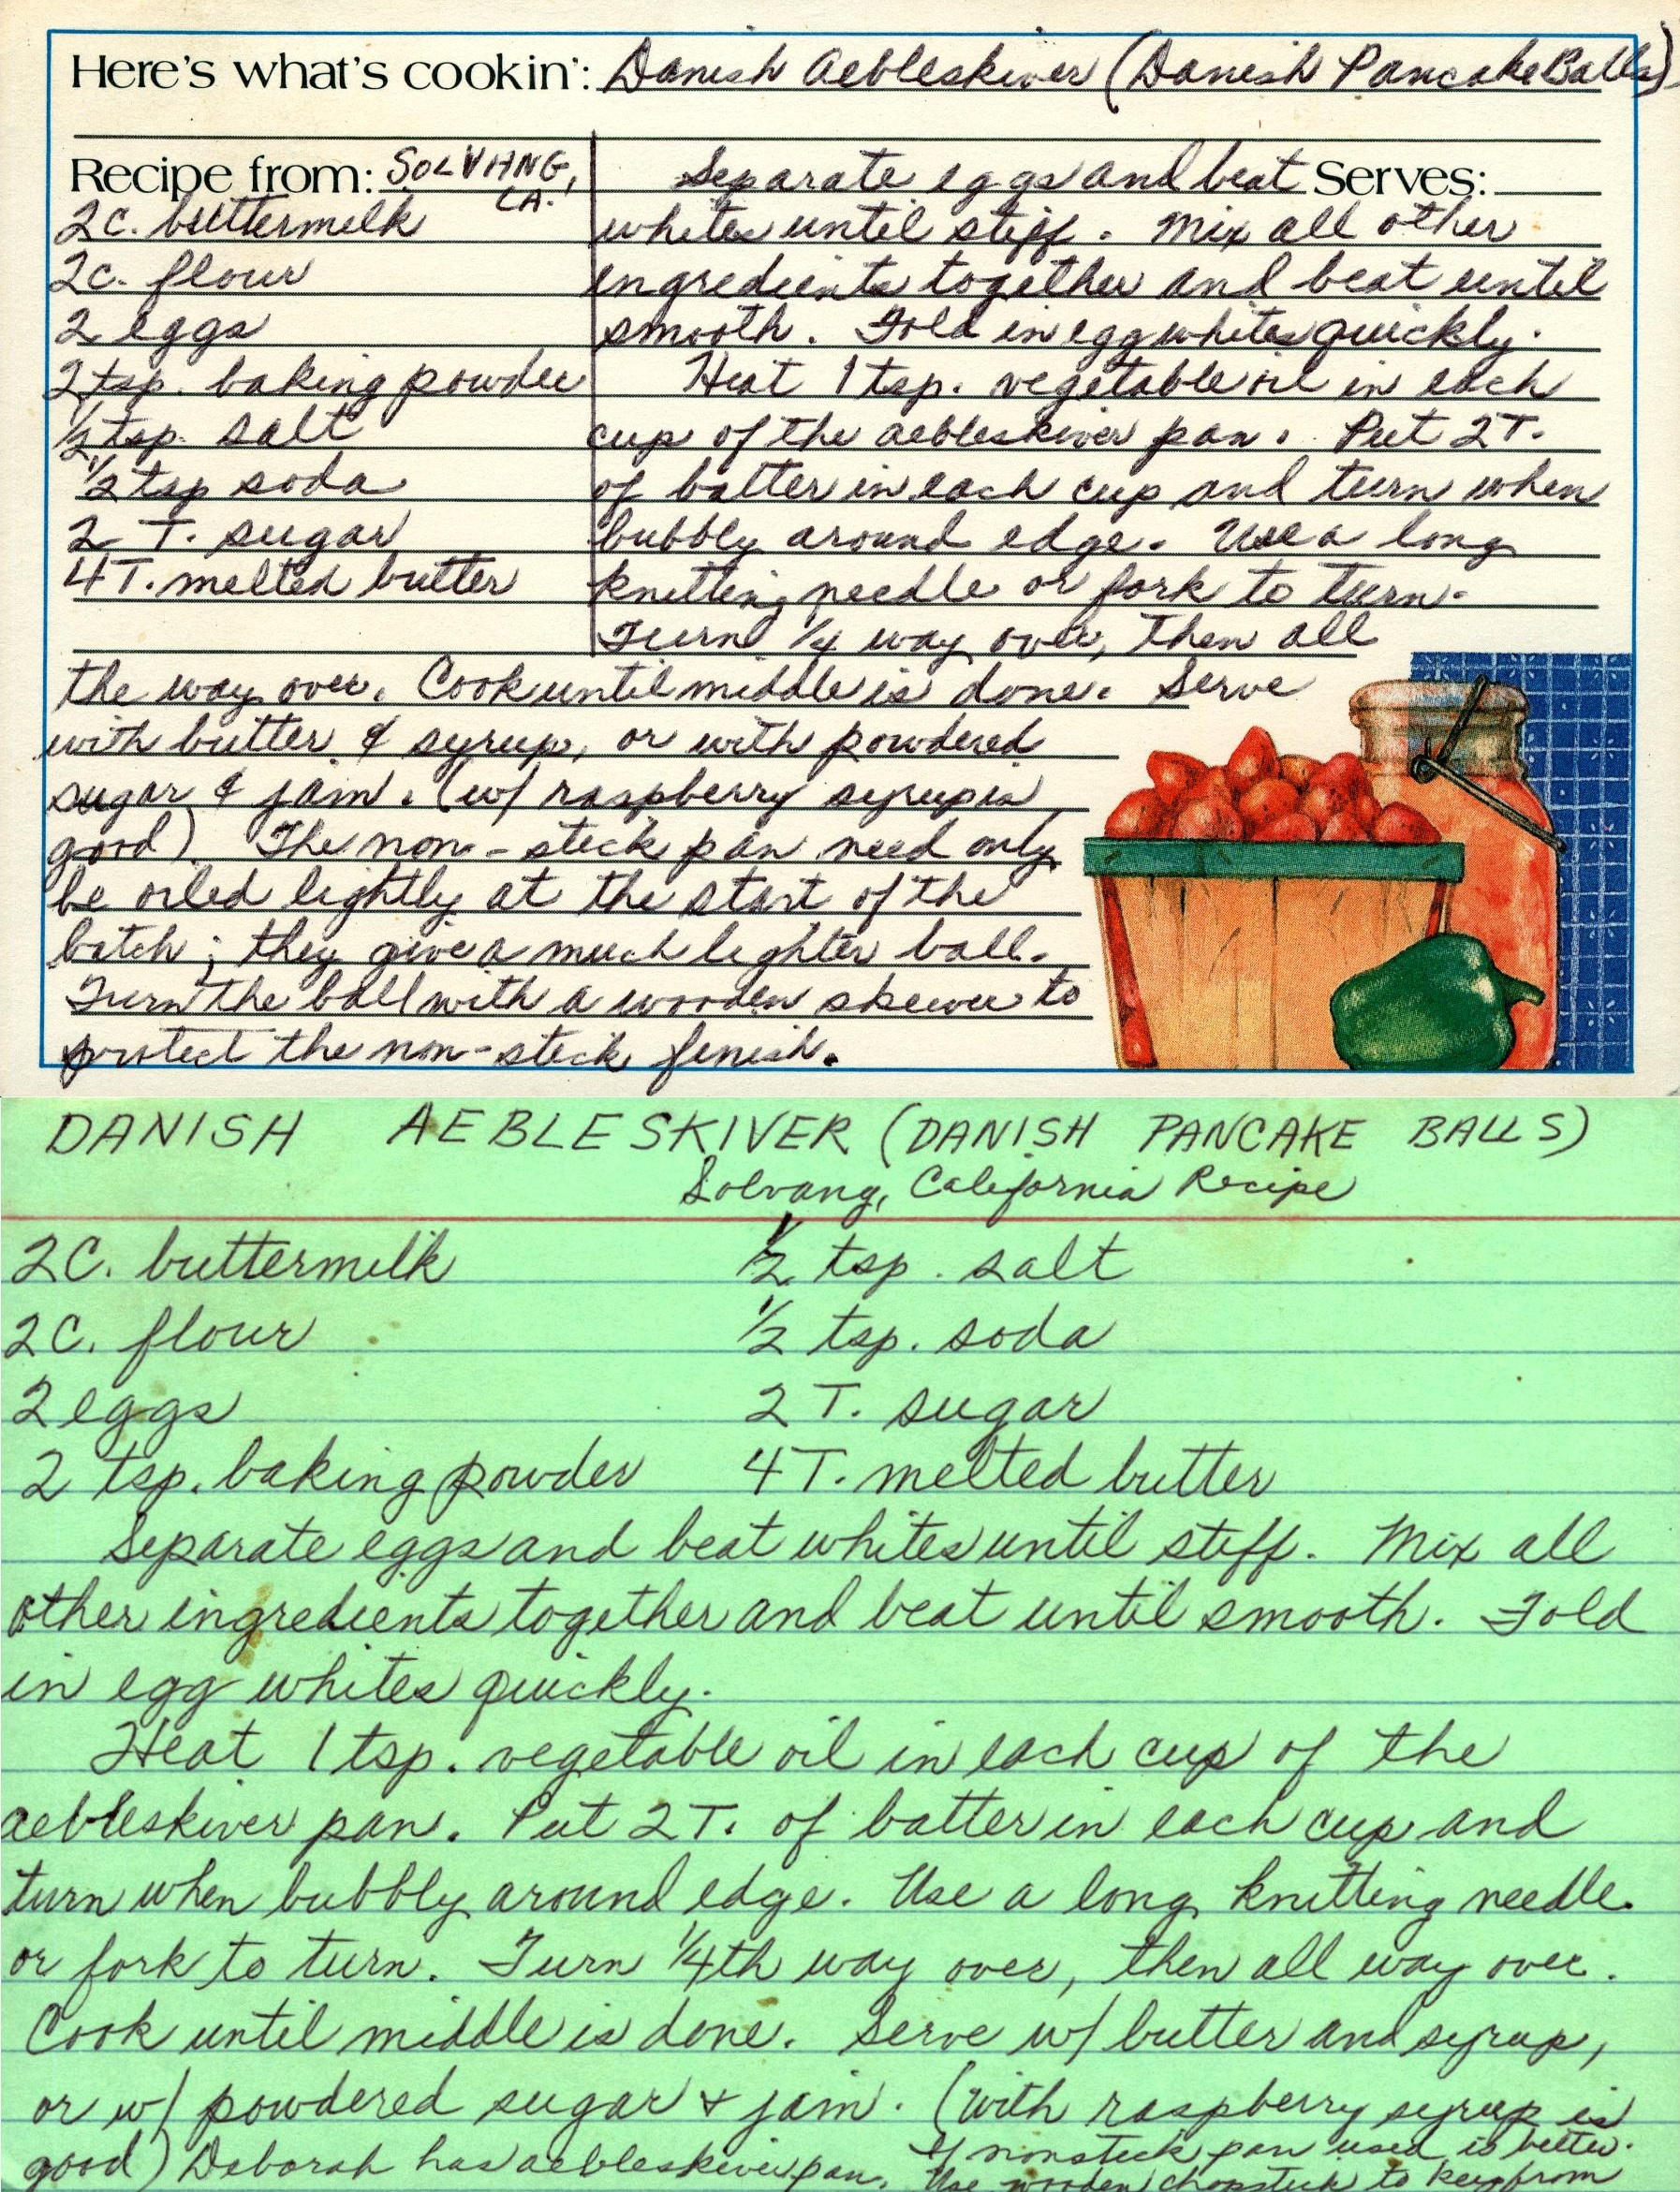 Here's what's cookin': Danish Aebleskiver (Danish Pancake Balls)
Recipe from: SOLVANG, CA.
Serves:
2C. buttermilk
2C. flour
2 eggs
2 tsp. baking powder
1/2 tsp. salt
1/2 tsp soda
2 T. sugar
4T. melted butter
Separate eggs and beat
whites until stiff. Mix all other
ingredients together and beat until
smooth. Fold in egg whites quickly.
Heat 1 tsp. vegetable oil in each
cup of the aebleskiver pan. Put 2T.
of batter in each cup and turn when
bubbly around edge. Use a long
knitting needle or fork to turn.
Turn 1/4 way over, then all
the way over. Cook until middle is done. Serve
with butter & syrup, or with powdered
sugar & jam. (w/ raspberry syrup is
good) The non-stick pan need only
be oiled lightly at the start of the
batch; they give a much lighter ball.
Turn the ball with a wooden skewer to
protect the non-stick finish.
DANISH AEBLESKIVER (DANISH PANCAKE BALLS)
Solvang, California Recipe
2C. buttermilk 1/2 tsp. salt
2C. flour 1/2 tsp. soda
2 eggs 2 T. sugar
2 tsp. baking powder 4T. melted butter
Separate eggs and beat whites until stiff. Mix all
other ingredients together and beat until smooth. Fold
in egg whites quickly.
Heat 1 tsp. vegetable oil in each cup of the
aebleskiver pan. Put 2T. of batter in each cup and
turn when bubbly around edge. Use a long knitting needle
or fork to turn. Turn 1/4th way over, then all way over.
Cook until middle is done. Serve w/ butter and syrup,
or w/ powdered sugar & jam. (with raspberry syrup is
good) Deborah has aebleskiver pan. If nonstick pan used is better.
Use wooden chopstick to keep from